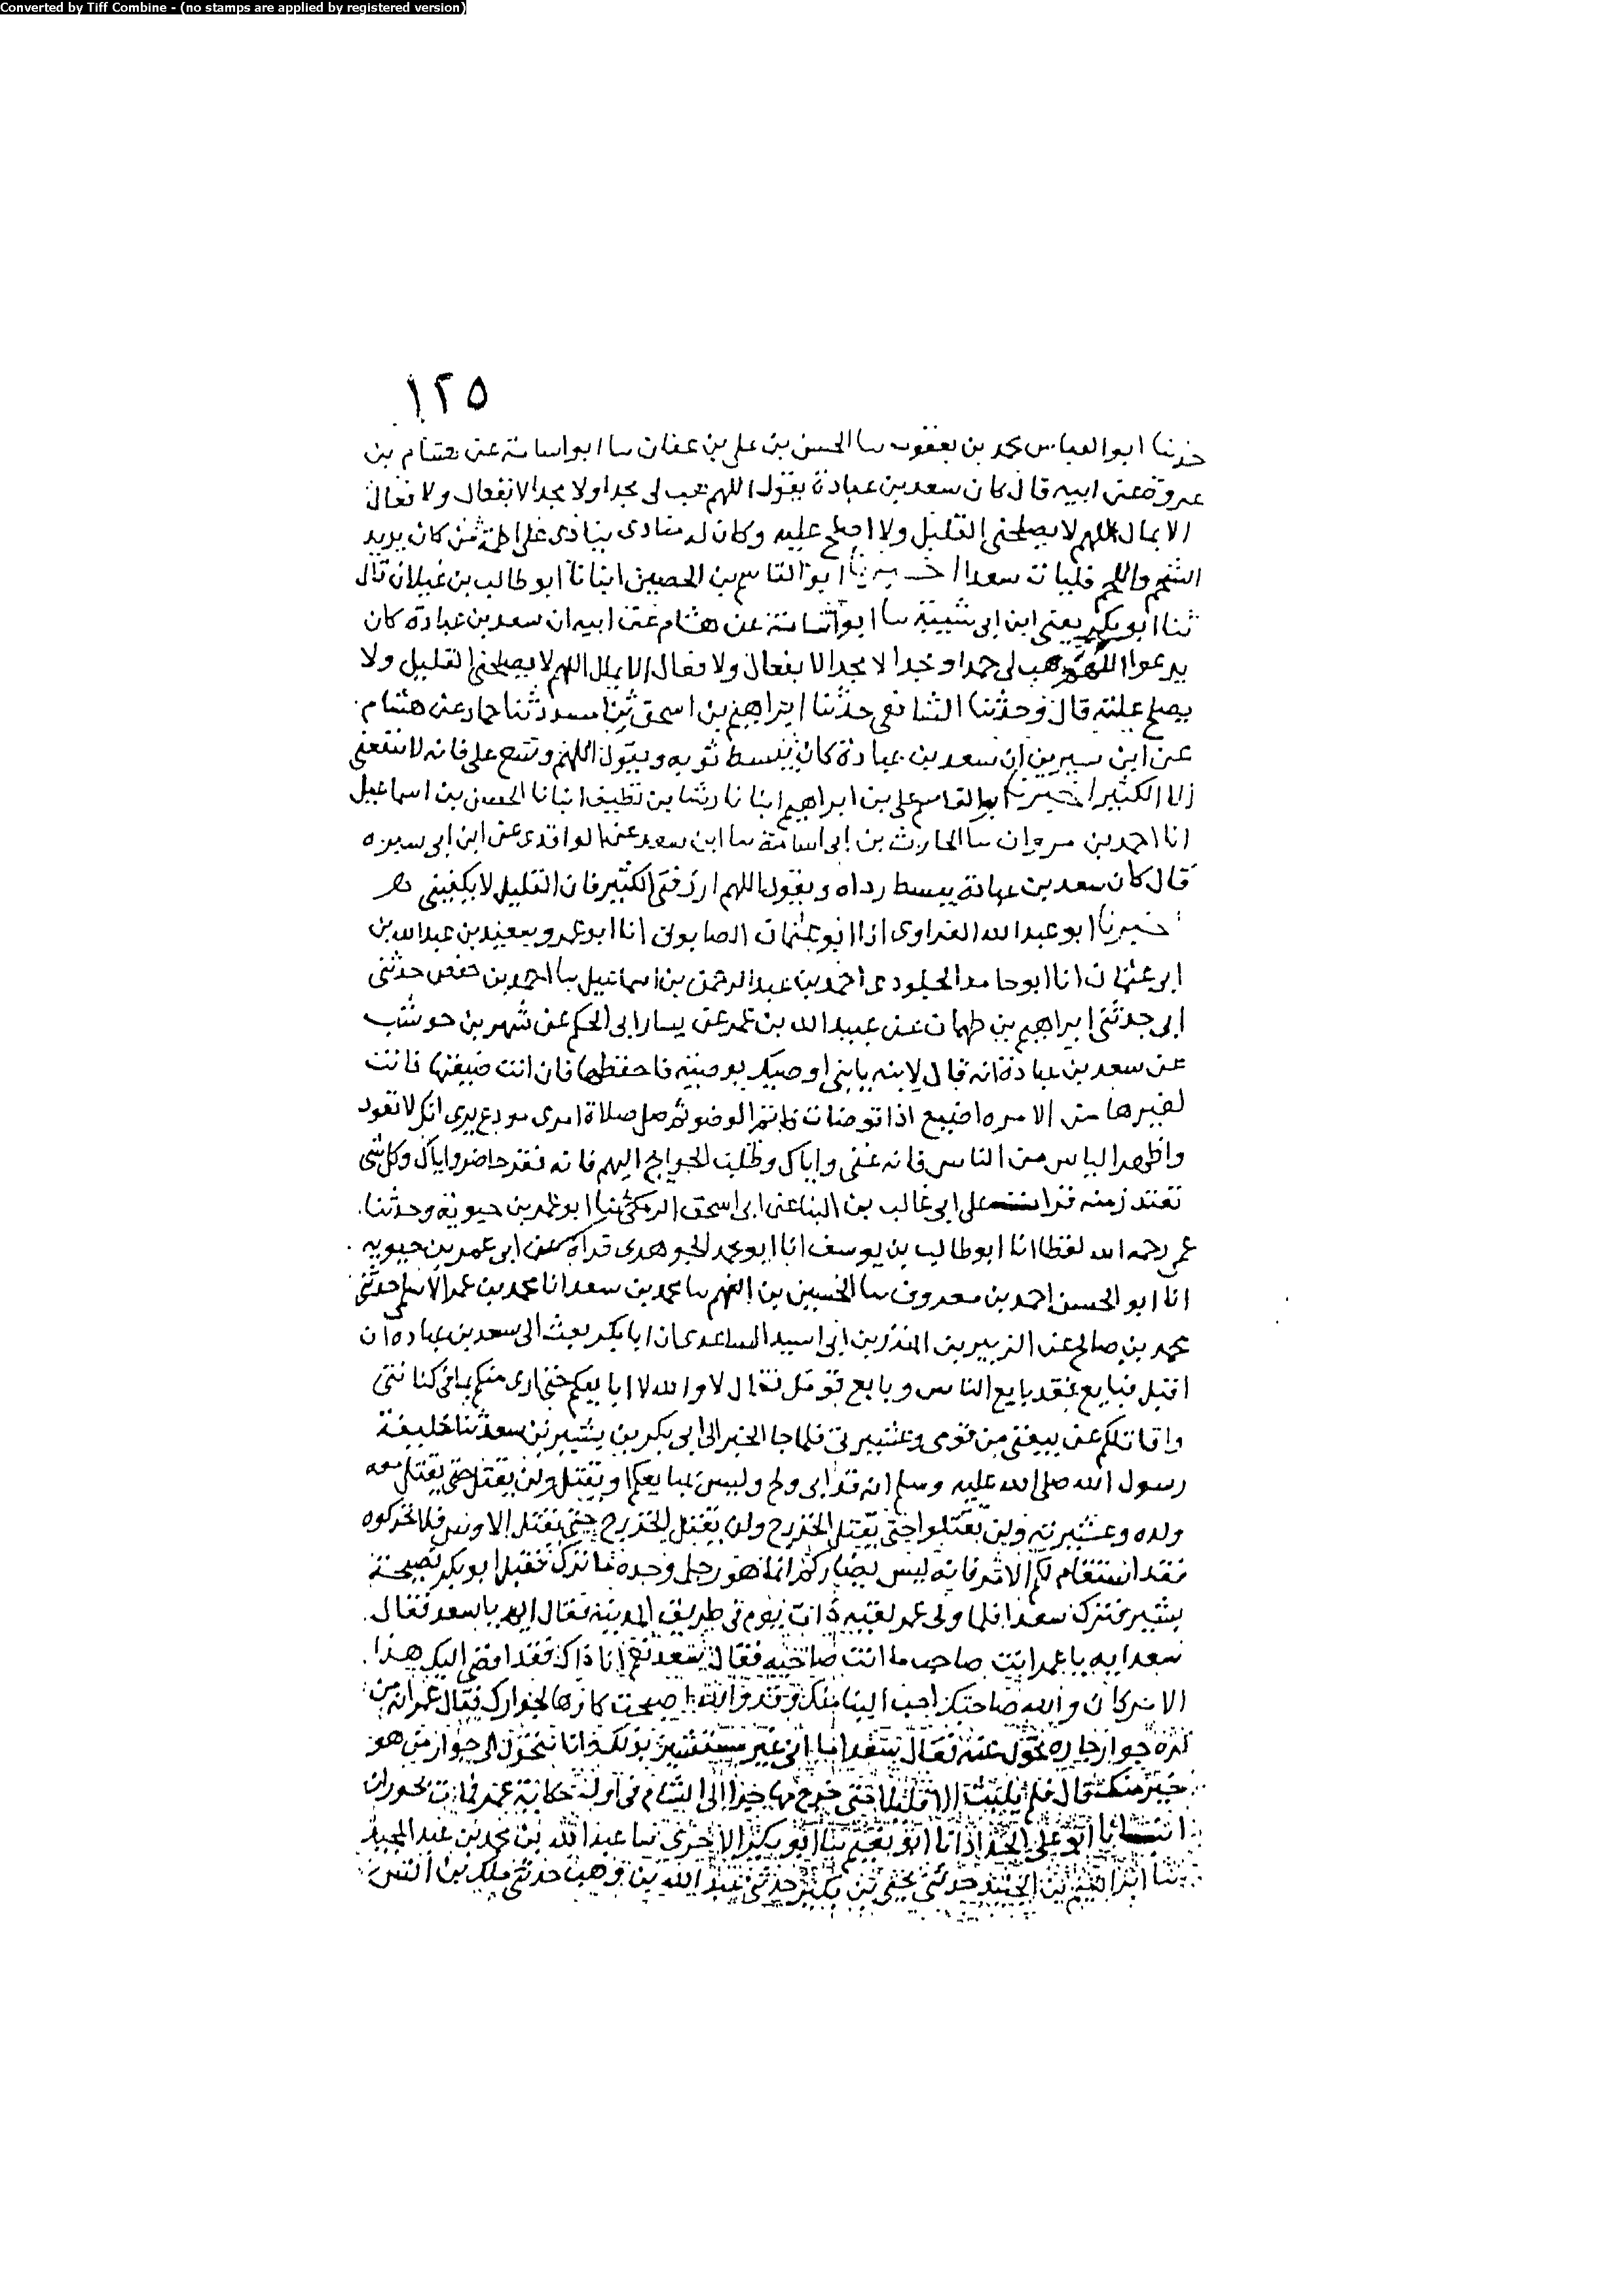 Converted by Tiff Combine - (no stamps are applied by registered version)
١٢٥
حدثنا ابو العباس محمد بن يعقوب سا الحسن بن على بن عفان سا ابو اسامة عن هشام بن
عروة عن ابيه قال كان سعد بن عبادة يقول اللهم هب لى مجدا ولا مجد الا بفعال ولا فعال
الا بمال اللهم لا يصلحنى القليل ولا اصلح عليه وكان له منادى ينادى على اطمه من كان يريد
الشحم واللحم فليات سعدا اخبرنا ابو القاسم بن الحصين انبانا ابو طالب بن غيلان قال
ثنا ابو بكر يعنى ابن ابى شيبة سا ابو اسامة عن هشام عن ابيه ان سعد بن عبادة كان
يدعوا اللهم هب لى حمدا ومجدا لا مجد الا بفعال ولا فعال الا بمال اللهم لا يصلحنى القليل ولا
يصلح عليه قال وحدثنا الشافعى حدثنا ابراهيم بن اسحق ثنا حماد عن هشام
عن ابن سيرين ان سعد بن عبادة كان يبسط ثوبه ويقول اللهم وسع على فانه لا ينفعنى
الا الكثير اخبرنا ابو القاسم على بن ابراهيم انبانا رشا بن نظيف انبانا الحسن بن اسماعيل
انا احمد بن مروان سا الحارث بن ابى اسامة سا ابن سعد عن الواقدى عن ابن ابى سبره
قال كان سعد بن عبادة يبسط رداه ويقول اللهم ارزقنى الكثير فان القليل لا يكفينى
اخبرنا ابو عبد الله الفراوى انا ابو عثمان الصابونى انا ابو عمرو سعيد بن عبد الله بن
ابى عثمان انا ابو حامد الجلودى احمد بن عبد الرحمن بن اسماعيل سا احمد بن حفص حدثنى
ابى حدثنى ابراهيم بن طهمان عن عبيد الله بن عمر عن يسار ابى الحكم عن شهر بن حوشب
عن سعد بن عبادة انه قال لابنه يا بنى اوصيك بوصيه فاحفظها فان انت ضيعتها فانت
لغيرها من الامره اضيع اذا توضات فاتم الوضو ثم صل صلاة امرى مودع يرى انك لا تعود
واظهر الياس من الناس فانه غنى واياك وطلب الحوايج اليهم فانه فقر حاضر واياك وكل شى
تعتذر منه قرات على ابى غالب بن البنا عن ابى اسحق البرمكى انا ابو عمر بن حيوية وحدثنا
عمى رحمه الله لفظا انا ابو طالب بن يوسف انا ابو محمد الجوهرى قراة عن ابى عمر بن حيويه
انا ابو الحسن احمد بن معروف سا الحسين بن الفهم سا محمد بن سعد انا محمد بن عمر الاسلمى حدثنى
محمد بن صالح عن الزبير بن المنذر بن ابى اسيد الساعدى ان ابا بكر بعث الى سعد بن عباده ان
اقبل فبايع فقد بايع الناس وبايع قومك فقال لا والله لا ابايعكم حتى ارى منكم بما فى كنانتى
واقاتلكم عن يبعنى من قومى وعشيرتى فلما جا الخبر الى ابى بكر بن بشير بن سعد ثنا خليفة
رسول الله صلى الله عليه وسلم انه قد ابى ولج وليس بمبايعكم او يقتل ولن يقتل حتى يقتل معه
ولده وعشيرته ولن يقتلوا حتى يقتل الخزرج ولن يقتل الخزرج حتى يقتل الاوس فلا تحركوه
فقد استقام لكم الامر فانه ليس بضاركم انما هو رجل وحده ما ترك فقبل ابو بكر نصيحة
بشير فترك سعدا فلما ولى عمر لقيه ذات يوم فى طريق المدينة فقال ايه يا سعد فقال
سعد ايه يا عمر انت صاحب ما انت صاحبه فقال سعد نعم انا ذاك وقد افضى اليك هذا
الامر كان والله صاحبك احب الينا منك وقد والله اصبحت كارها لجوارك فقال عمر انه من
كره جوار جاره تحول عنه فقال سعد اما انى غير مستنسئ بذلك وانا متحول الى جوار من هو
خير منك قال فلم يلبث الا قليلا حتى خرج مهاجرا الى الشام فى اول خلافة عمر فمات بحوران
انبانا ابو على الحداد انا ابو نعيم سا ابو بكر الاجرى سا عبد الله بن محمد بن عبد الحميد
ثنا ابراهيم بن الجنيد حدثنى يحيى بن بكير حدثنى عبد الله بن وهب حدثنى ملك بن انس